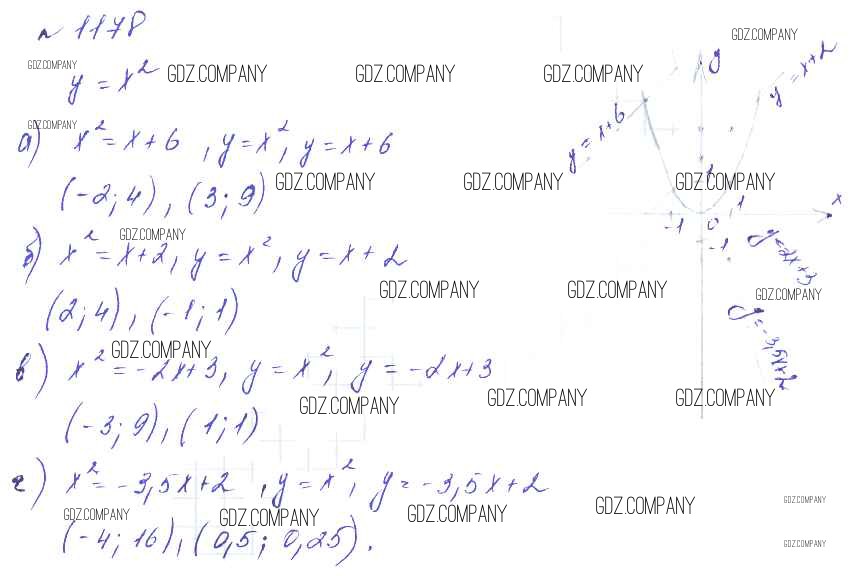 № 1178
y = x²
а) x² = x + 6, y = x², y = x + 6
(-2; 4), (3; 9)
б) x² = x + 2, y = x², y = x + 2
(2; 4), (-1; 1)
в) x² = -2x + 3, y = x², y = -2x + 3
(-3; 9), (1; 1)
г) x² = -3,5x + 2, y = x², y = -3,5x + 2
(-4; 16), (0,5; 0,25).
y
y = x + 2
y = x + 6
1
x
-1 0 1
-1
y = -2x + 3
y = -3,5x + 2
GDZ.COMPANY
GDZ.COMPANY
GDZ.COMPANY GDZ.COMPANY GDZ.COMPANY
GDZ.COMPANY
GDZ.COMPANY GDZ.COMPANY GDZ.COMPANY
GDZ.COMPANY
GDZ.COMPANY GDZ.COMPANY GDZ.COMPANY
GDZ.COMPANY
GDZ.COMPANY GDZ.COMPANY GDZ.COMPANY
GDZ.COMPANY GDZ.COMPANY GDZ.COMPANY GDZ.COMPANY GDZ.COMPANY
GDZ.COMPANY